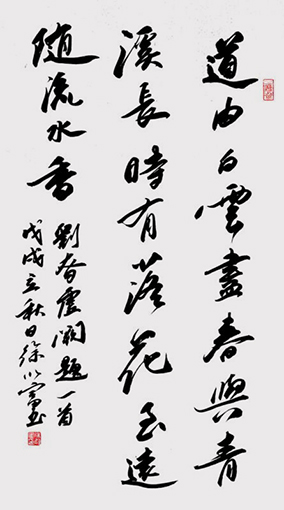 道由白雲盡春與青
溪長時有落花至遠
隨流水香
劉眘虛闕題一首
戊戌立秋日徐